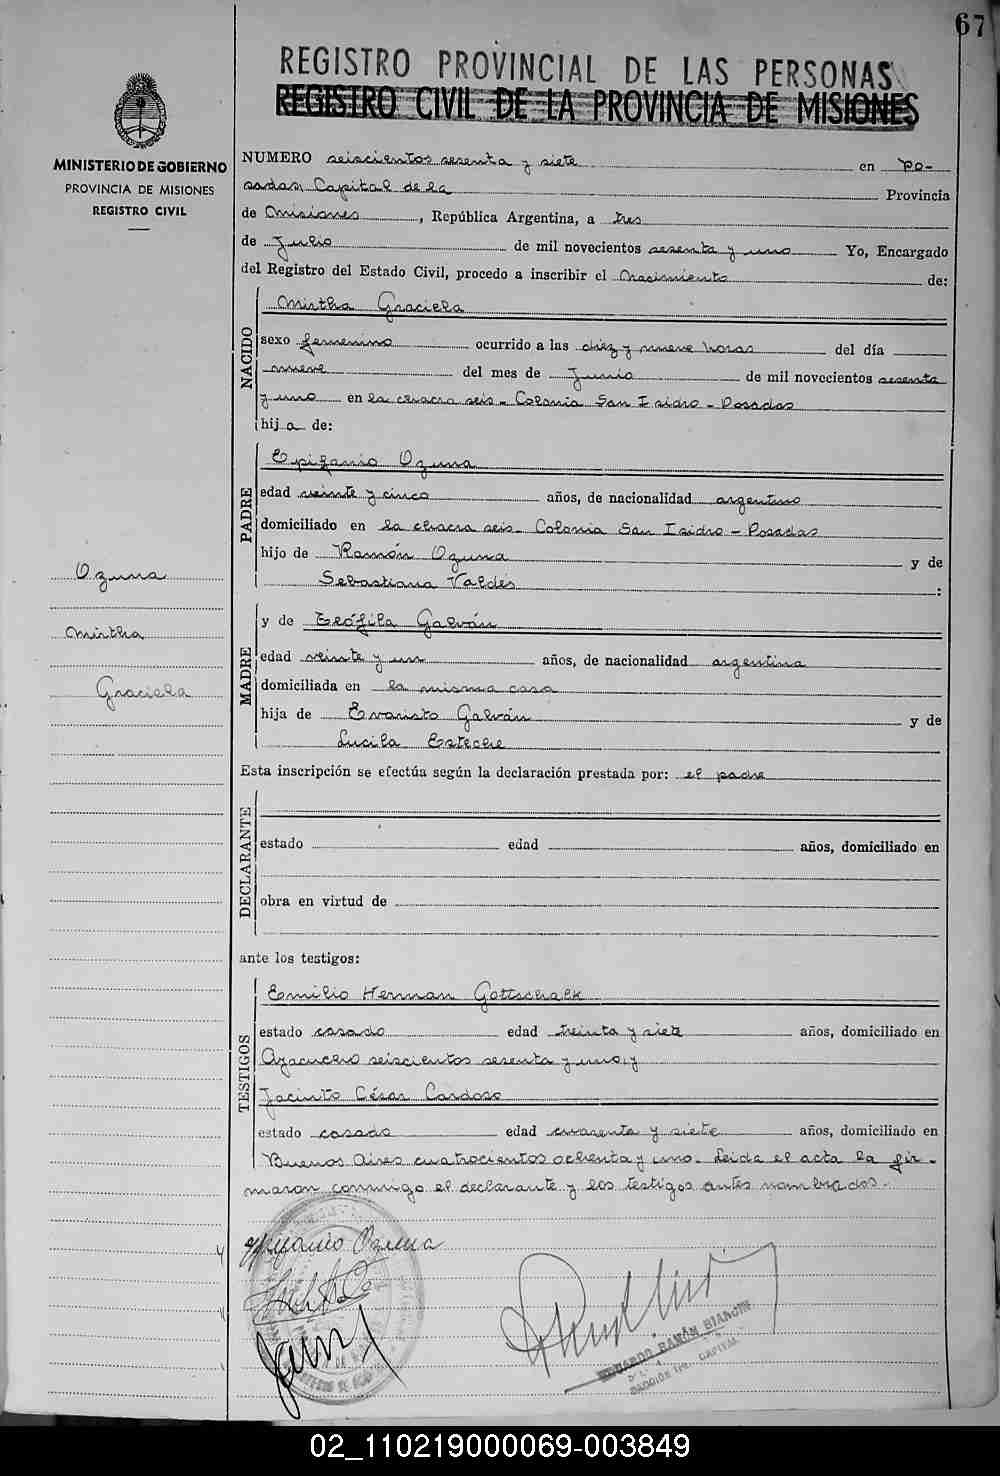 67
REGISTRO PROVINCIAL DE LAS PERSONAS
REGISTRO CIVIL DE LA PROVINCIA DE MISIONES
MINISTERIO DE GOBIERNO
PROVINCIA DE MISIONES
REGISTRO CIVIL
NUMERO seiscientos sesenta y siete en Po-
sadas, Capital de la Provincia
de Misiones, República Argentina, a tres
de Julio de mil novecientos sesenta y uno Yo, Encargado
del Registro del Estado Civil, procedo a inscribir el Nacimiento de:
NACIDO
Mirtha Graciela
sexo femenino ocurrido a las diez y nueve horas del día
nueve del mes de Junio de mil novecientos sesenta
y uno en la chacra seis - Colonia San Isidro - Posadas
hij a de:
PADRE
Epifanio Ozuna
edad veinte y cinco años, de nacionalidad argentino
domiciliado en la chacra seis - Colonia San Isidro - Posadas
hijo de Ramón Ozuna y de
Sebastiana Valdes :
Ozuna
Mirtha
Graciela
MADRE
y de Teófila Galván
edad veinte y un años, de nacionalidad argentina
domiciliada en la misma casa
hija de Evaristo Galván y de
Lucila Esteche
Esta inscripción se efectúa según la declaración prestada por: el padre
DECLARANTE
estado edad años, domiciliado en
obra en virtud de
ante los testigos:
TESTIGOS
Emilio Herman Gottschalk
estado casado edad treinta y siete años, domiciliado en
Ayacucho seiscientos sesenta y uno, y
Jacinto César Cardoso
estado casado edad cuarenta y siete años, domiciliado en
Buenos Aires cuatrocientos ochenta y uno. Leida el acta la fir-
maron conmigo el declarante y los testigos antes nombrados.-
Epifanio Ozuna
EDUARDO RAMÓN BIANCHI
CAPITAL
02_110219000069-003849